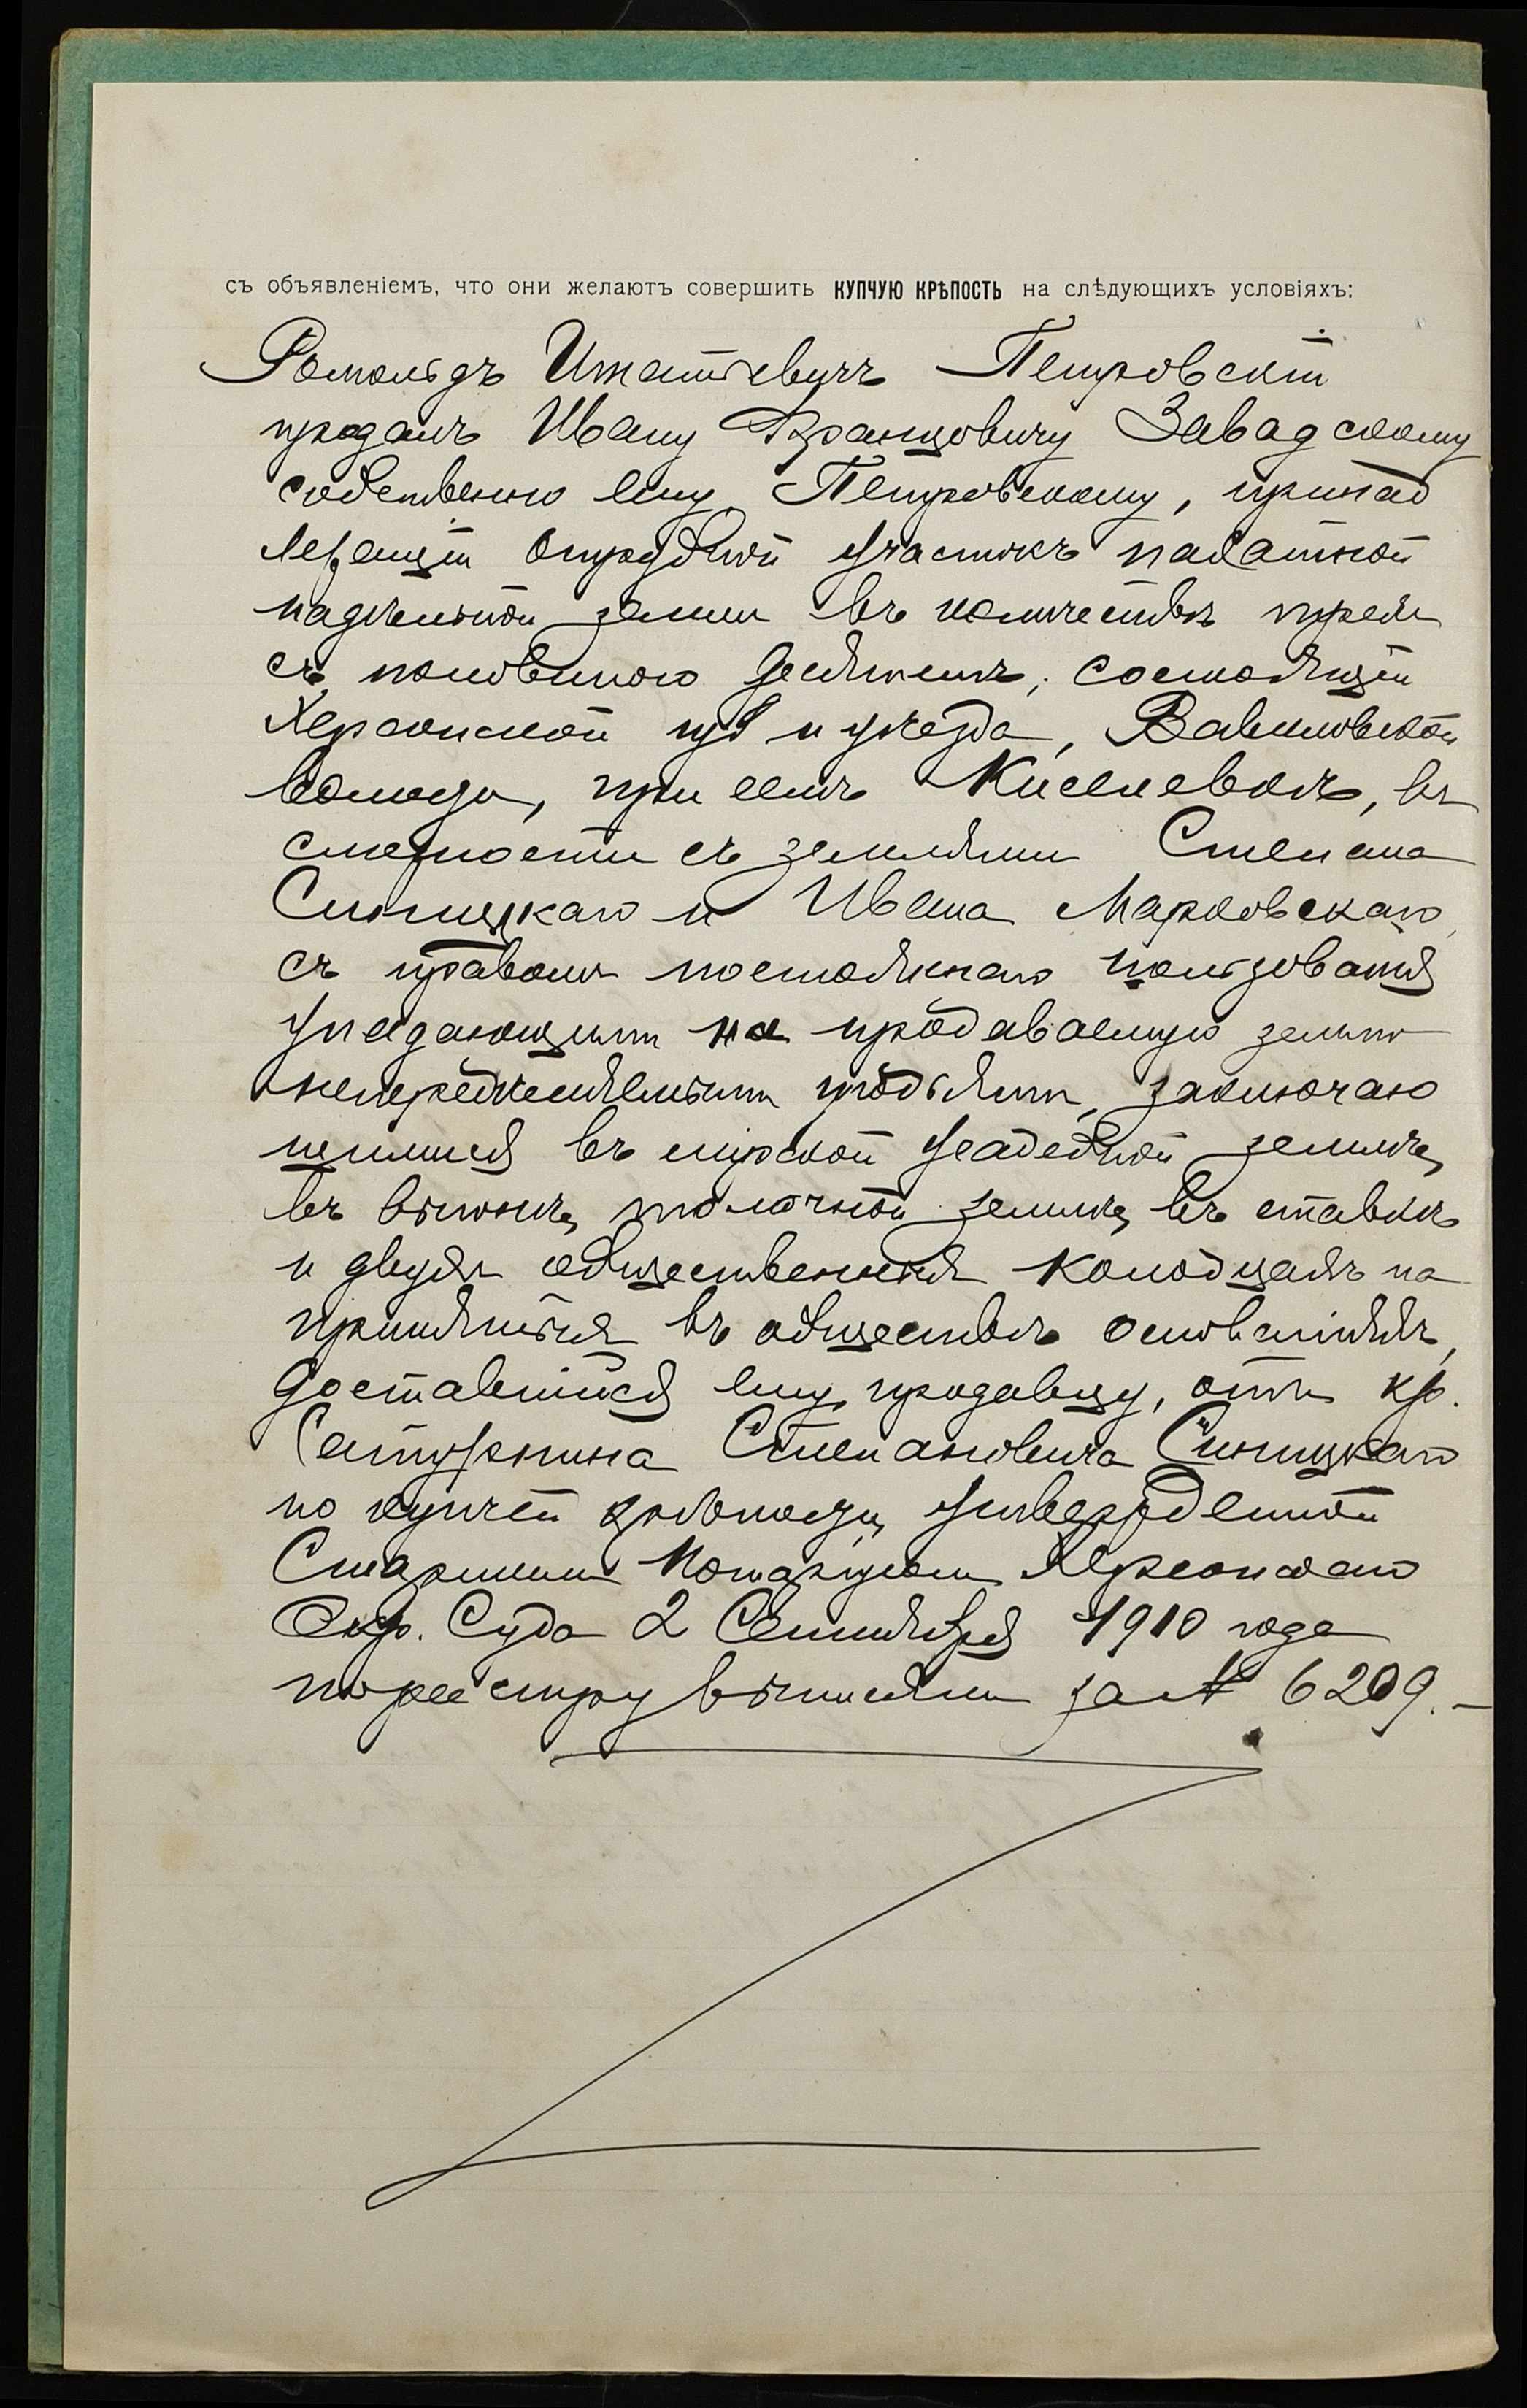 съ объявленіемъ, что они желаютъ совершить КУПЧУЮ КРѢПОСТЬ на слѣдующихъ условіяхъ:
Ромольдъ Игнатьевичъ Петровскій
продалъ Ивану Францовичу Завадскому
собственно ему, Петровскому, принад
лежащій отрубной участокъ пахатной
надѣльной земли въ количествѣ трехъ
съ половиною десятинъ, состоящій
Херсонской губ и уѣзда, Вавиловской
волости, при селѣ Киселевкѣ, въ
смежности съ землями Степана
Синицкаго и Ивана Марковскаго,
съ правомъ постояннаго пользованія
упадающими на продаваемую землю
непередѣляемыми угодьями, заключаю
щимися въ мірской усадебной землѣ,
въ выгонѣ, толочной землѣ, въ ставкѣ
и двухъ общественныхъ колодцахъ на
принятыхъ въ обществѣ основаніяхъ,
доставшійся ему, продавцу, отъ кр.
Сатурнина Степановича Синицкаго
по купчей крѣпости, утвержденной
Старшимъ Нотаріусомъ Херсонскаго
Окр. Суда 2 Сентября 1910 года
по реестру выписями за № 6209.—